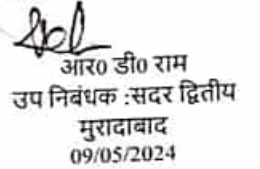 आर0 डी0 राम
उप निबंधक :सदर द्वितीय
मुरादाबाद
09/05/2024